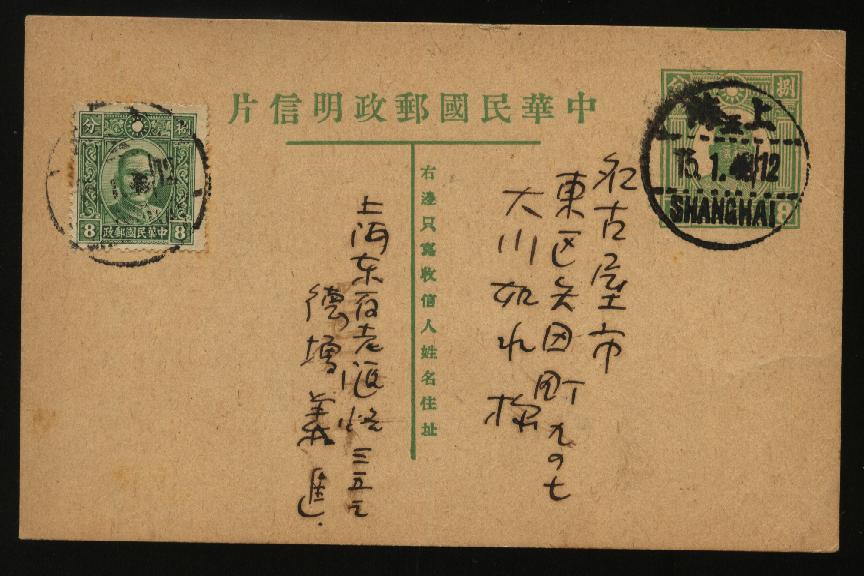 中華民國郵政明信片
右邊只寫收信人姓名住址
名古屋市
東区矢田町九ノ七
大川如水様
上海东百老滙路三五
德增義進
分 捌
8 8
中華民國郵政
分 捌
8
上海
15.1.4 /12
SHANGHAI